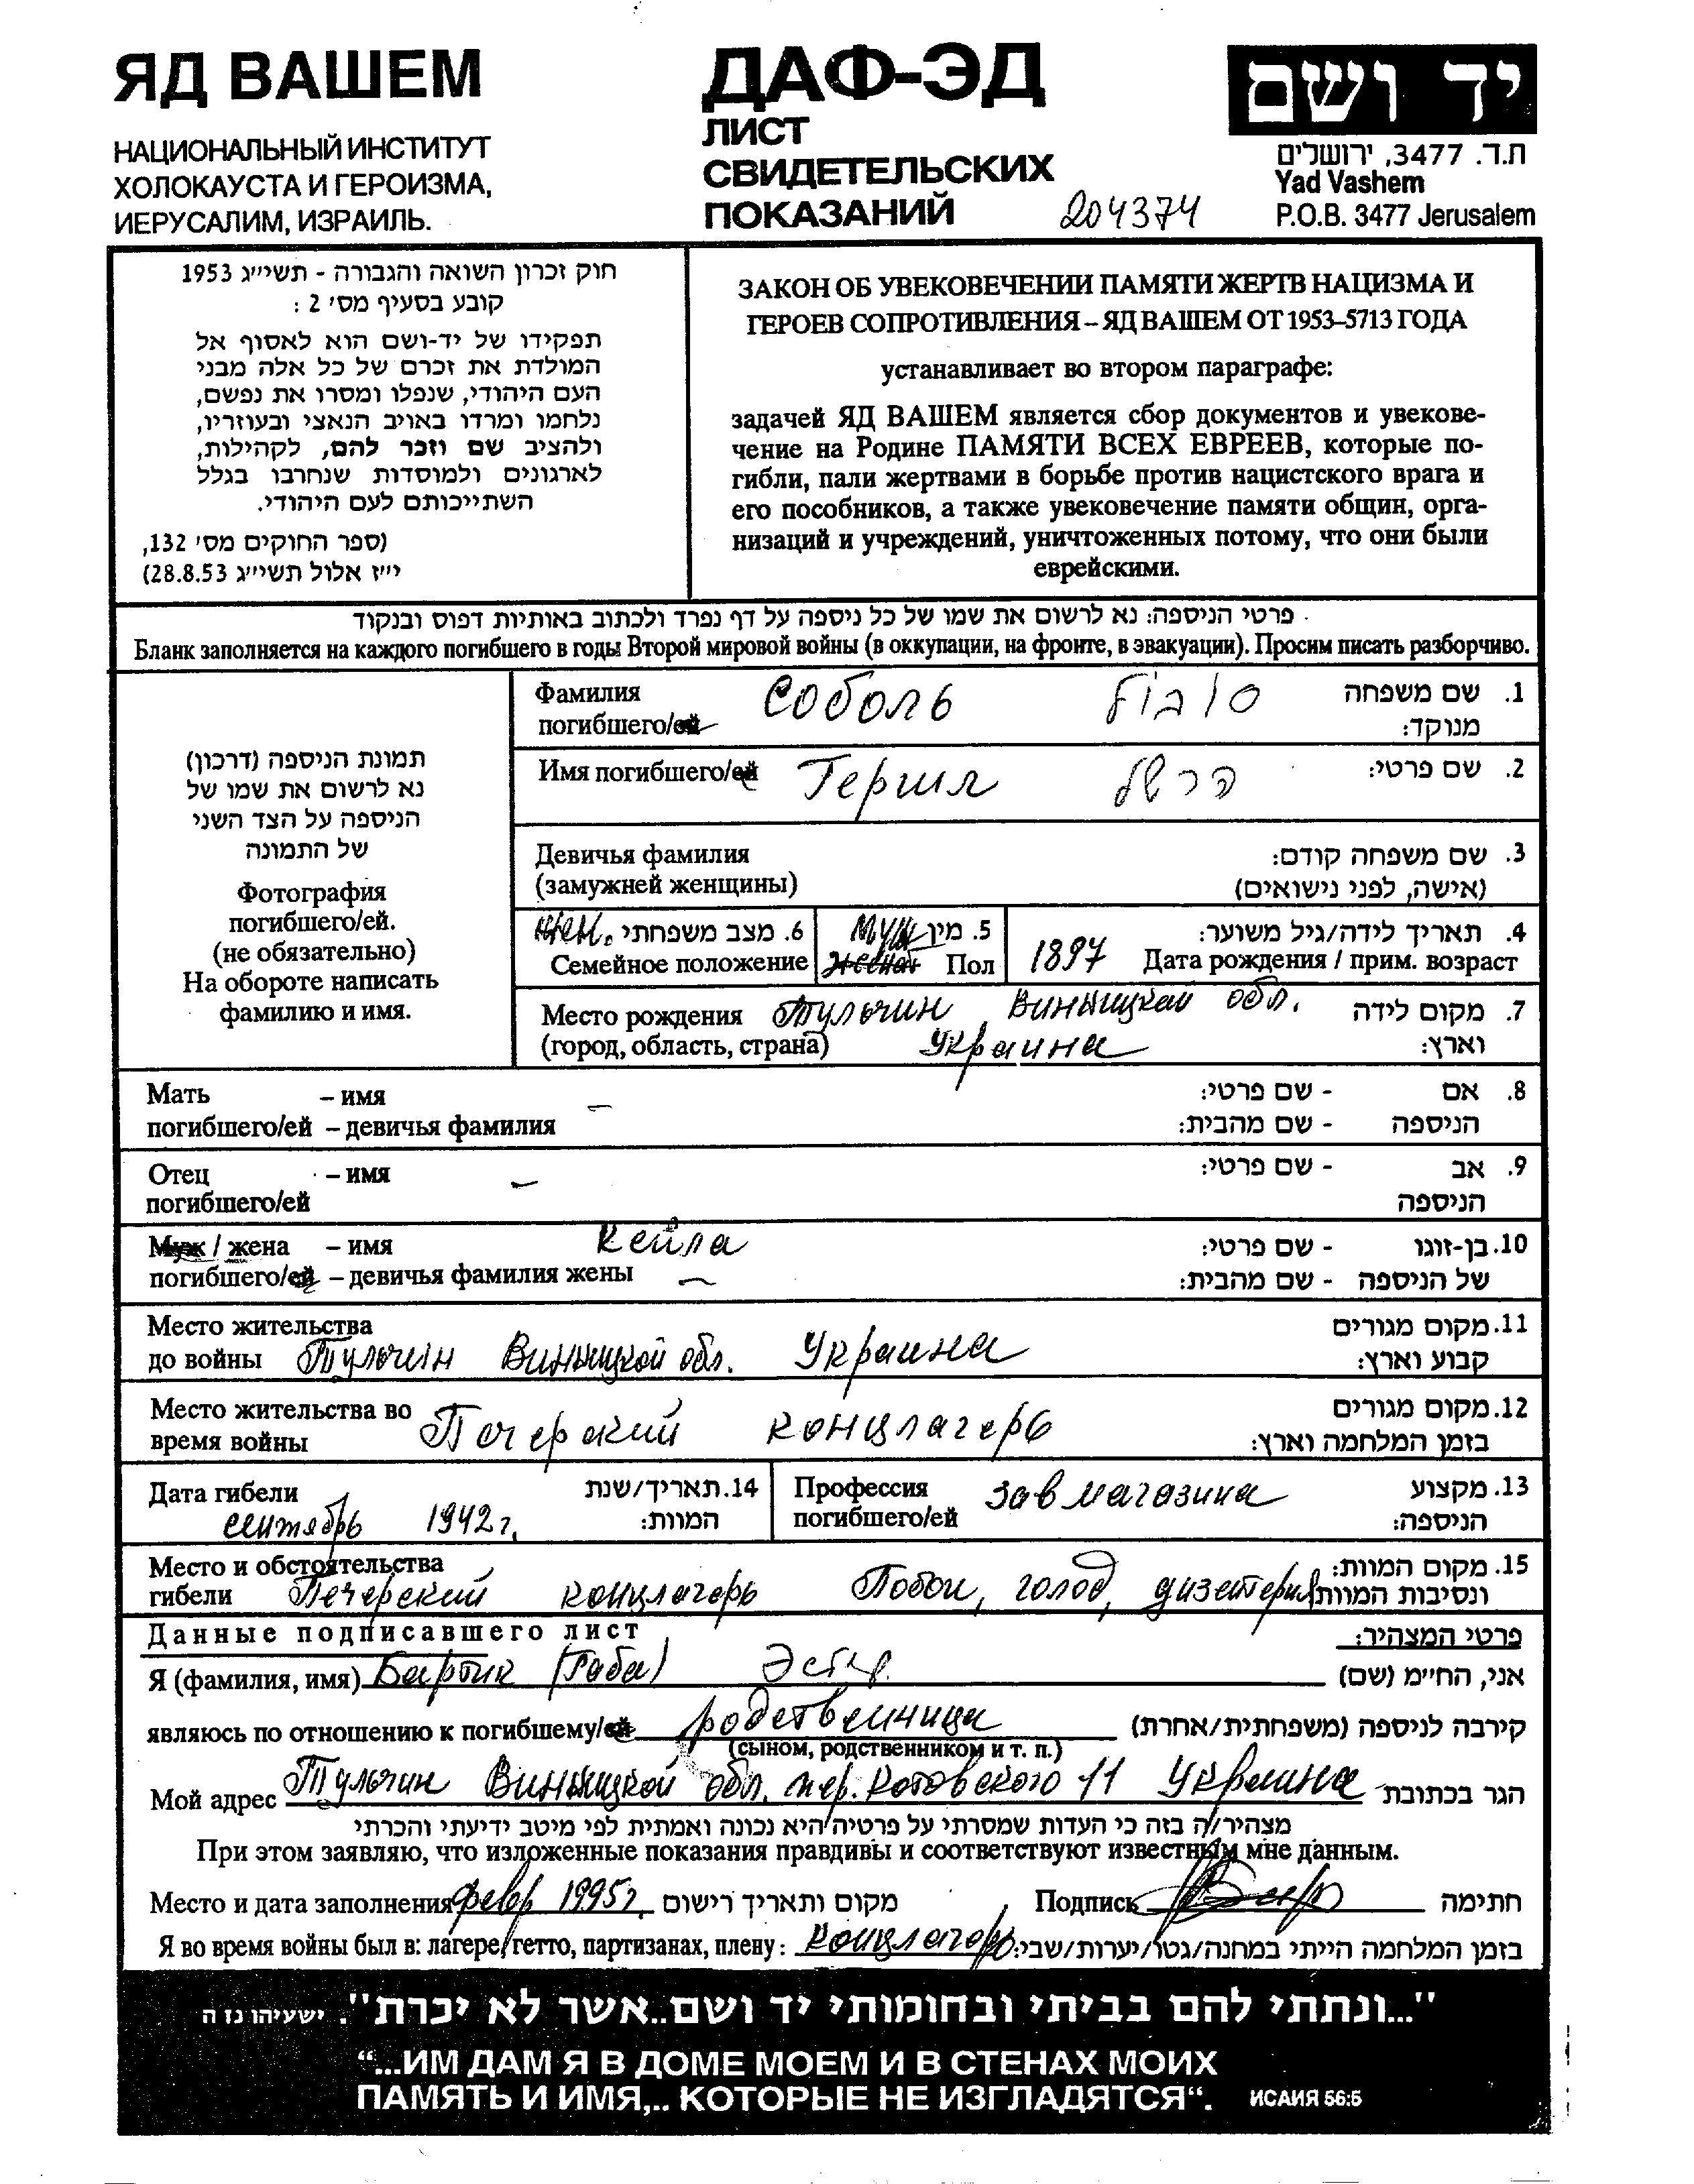 ЯД ВАШЕМ
НАЦИОНАЛЬНЫЙ ИНСТИТУТ
ХОЛОКАУСТА И ГЕРОИЗМА,
ИЕРУСАЛИМ, ИЗРАИЛЬ.
ДАФ-ЭД
ЛИСТ
СВИДЕТЕЛЬСКИХ
ПОКАЗАНИЙ 204374
יד ושם
ת.ד. 3477, ירושלים
Yad Vashem
P.O.B. 3477 Jerusalem
חוק זכרון השואה והגבורה - תשי״ג 1953
קובע בסעיף מס׳ 2 :
תפקידו של יד-ושם הוא לאסוף אל
המולדת את זכרם של כל אלה מבני
העם היהודי, שנפלו ומסרו את נפשם,
נלחמו ומרדו באויב הנאצי ובעוזריו,
ולהציב שם וזכר להם, לקהילות,
לארגונים ולמוסדות שנחרבו בגלל
השתייכותם לעם היהודי.
(ספר החוקים מס׳ 132,
י״ז אלול תשי״ג 28.8.53)
ЗАКОН ОБ УВЕКОВЕЧЕНИИ ПАМЯТИ ЖЕРТВ НАЦИЗМА И
ГЕРОЕВ СОПРОТИВЛЕНИЯ – ЯД ВАШЕМ ОТ 1953–5713 ГОДА
устанавливает во втором параграфе:
задачей ЯД ВАШЕМ является сбор документов и увекове-
чение на Родине ПАМЯТИ ВСЕХ ЕВРЕЕВ, которые по-
гибли, пали жертвами в борьбе против нацистского врага и
его пособников, а также увековечение памяти общин, орга-
низаций и учреждений, уничтоженных потому, что они были
еврейскими.
פרטי הניספה: נא לרשום את שמו של כל ניספה על דף נפרד ולכתוב באותיות דפוס ובנקוד
Бланк заполняется на каждого погибшего в годы Второй мировой войны (в оккупации, на фронте, в эвакуации). Просим писать разборчиво.
תמונת הניספה (דרכון)
נא לרשום את שמו של
הניספה על הצד השני
של התמונה
Фотография
погибшего/ей.
(не обязательно)
На обороте написать
фамилию и имя.
Фамилия Соболь סובול 1. שם משפחה
погибшего/ей מנוקד:
Имя погибшего/ей Гершл הרשל 2. שם פרטי:
Девичья фамилия 3. שם משפחה קודם:
(замужней женщины) (אישה, לפני נישואים)
жен. 6. מצב משפחתי муж 5. מין 4. תאריך לידה/גיל משוער:
Семейное положение Пол 1897 Дата рождения / прим. возраст
Место рождения Тульчин Винницкой обл. 7. מקום לידה
(город, область, страна) Украина וארץ:
Мать – имя – 8. אם - שם פרטי:
погибшего/ей – девичья фамилия הניספה - שם מהבית:
Отец – имя – 9. אב - שם פרטי:
погибшего/ей הניספה
Муж / жена – имя Кейла 10. בן-זוגו - שם פרטי:
погибшего/ей – девичья фамилия жены – של הניספה - שם מהבית:
Место жительства 11. מקום מגורים
до войны Тульчин Винницкой обл. Украина קבוע וארץ:
Место жительства во 12. מקום מגורים
время войны Печерский концлагерь בזמן המלחמה וארץ:
Дата гибели 14. תאריך/שנת
сентябрь 1942 г. המוות:
Профессия завмагазина 13. מקצוע
погибшего/ей הניספה:
Место и обстоятельства 15. מקום המוות:
гибели Печерский концлагерь Побои, голод, дизентерия ונסיבות המוות
Данные подписавшего лист פרטי המצהיר:
Я (фамилия, имя) Бартик (Габа) Эстер אני, החי״מ (שם)
являюсь по отношению к погибшему/ей родственница קירבה לניספה (משפחתית/אחרת)
(сыном, родственником и т. п.)
Мой адрес Тульчин Винницкой обл. пер. Котовского 11 Украина הגר בכתובת
מצהיר/ה בזה כי העדות שמסרתי על פרטיה היא נכונה ואמתית לפי מיטב ידיעתי והכרתי
При этом заявляю, что изложенные показания правдивы и соответствуют известным мне данным.
Место и дата заполнения февр 1995 г. מקום ותאריך רישום Подпись חתימה
Я во время войны был в: лагере, гетто, партизанах, плену: концлагерь בזמן המלחמה הייתי במחנה/גטו/יערות/שבי:
"...ונתתי להם בביתי ובחומותי יד ושם..אשר לא יכרת". ישעיהו נז ה
“...ИМ ДАМ Я В ДОМЕ МОЕМ И В СТЕНАХ МОИХ
ПАМЯТЬ И ИМЯ,.. КОТОРЫЕ НЕ ИЗГЛАДЯТСЯ“. ИСАИЯ 56:5